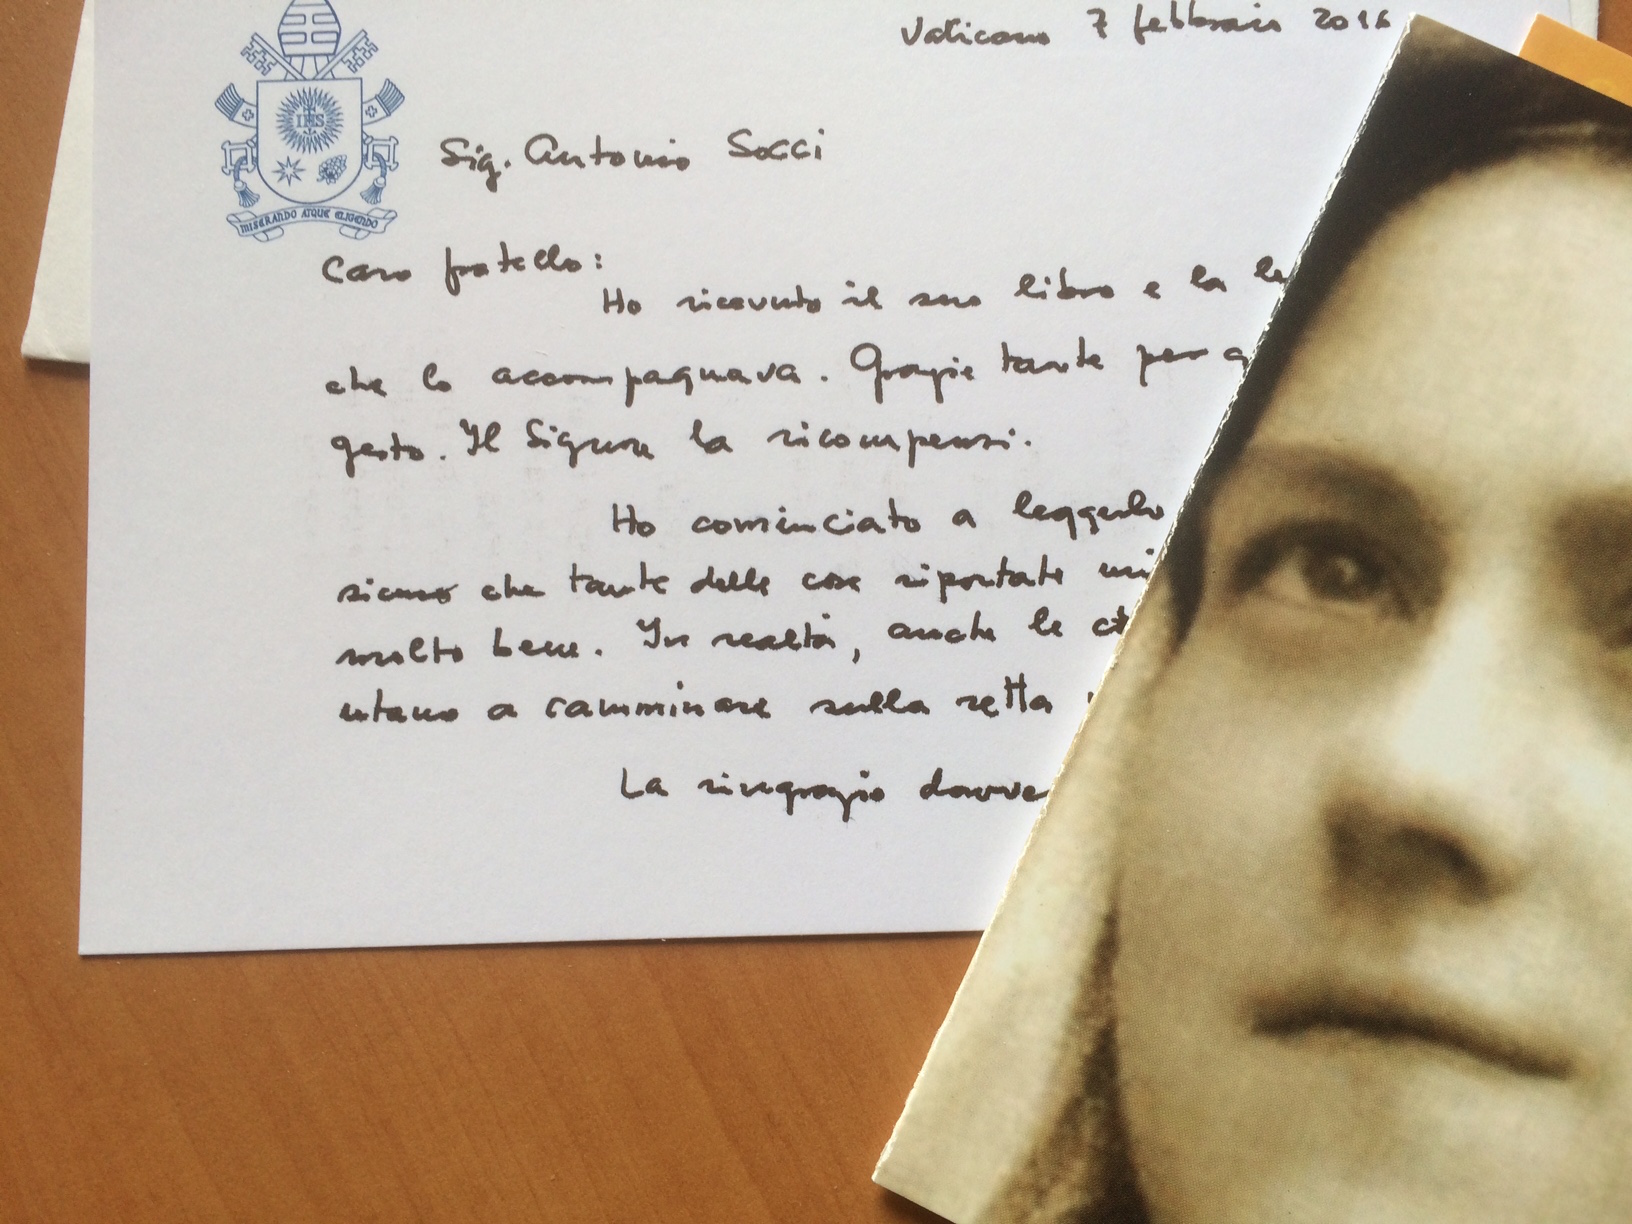 Vaticano 7 febbraio 2016
IHS
MISERANDO ATQUE ELIGENDO
Sig. Antonio Socci
Caro fratello:
Ho ricevuto il suo libro e la le
che lo accompagnava. Grazie tante per q
gesto. Il Signore la ricompensi.
Ho cominciato a leggerlo
sicuro che tante delle cose riportate mi
molto bene. In realtà, anche le c
utano a camminare sulla retta
La ringrazio davve